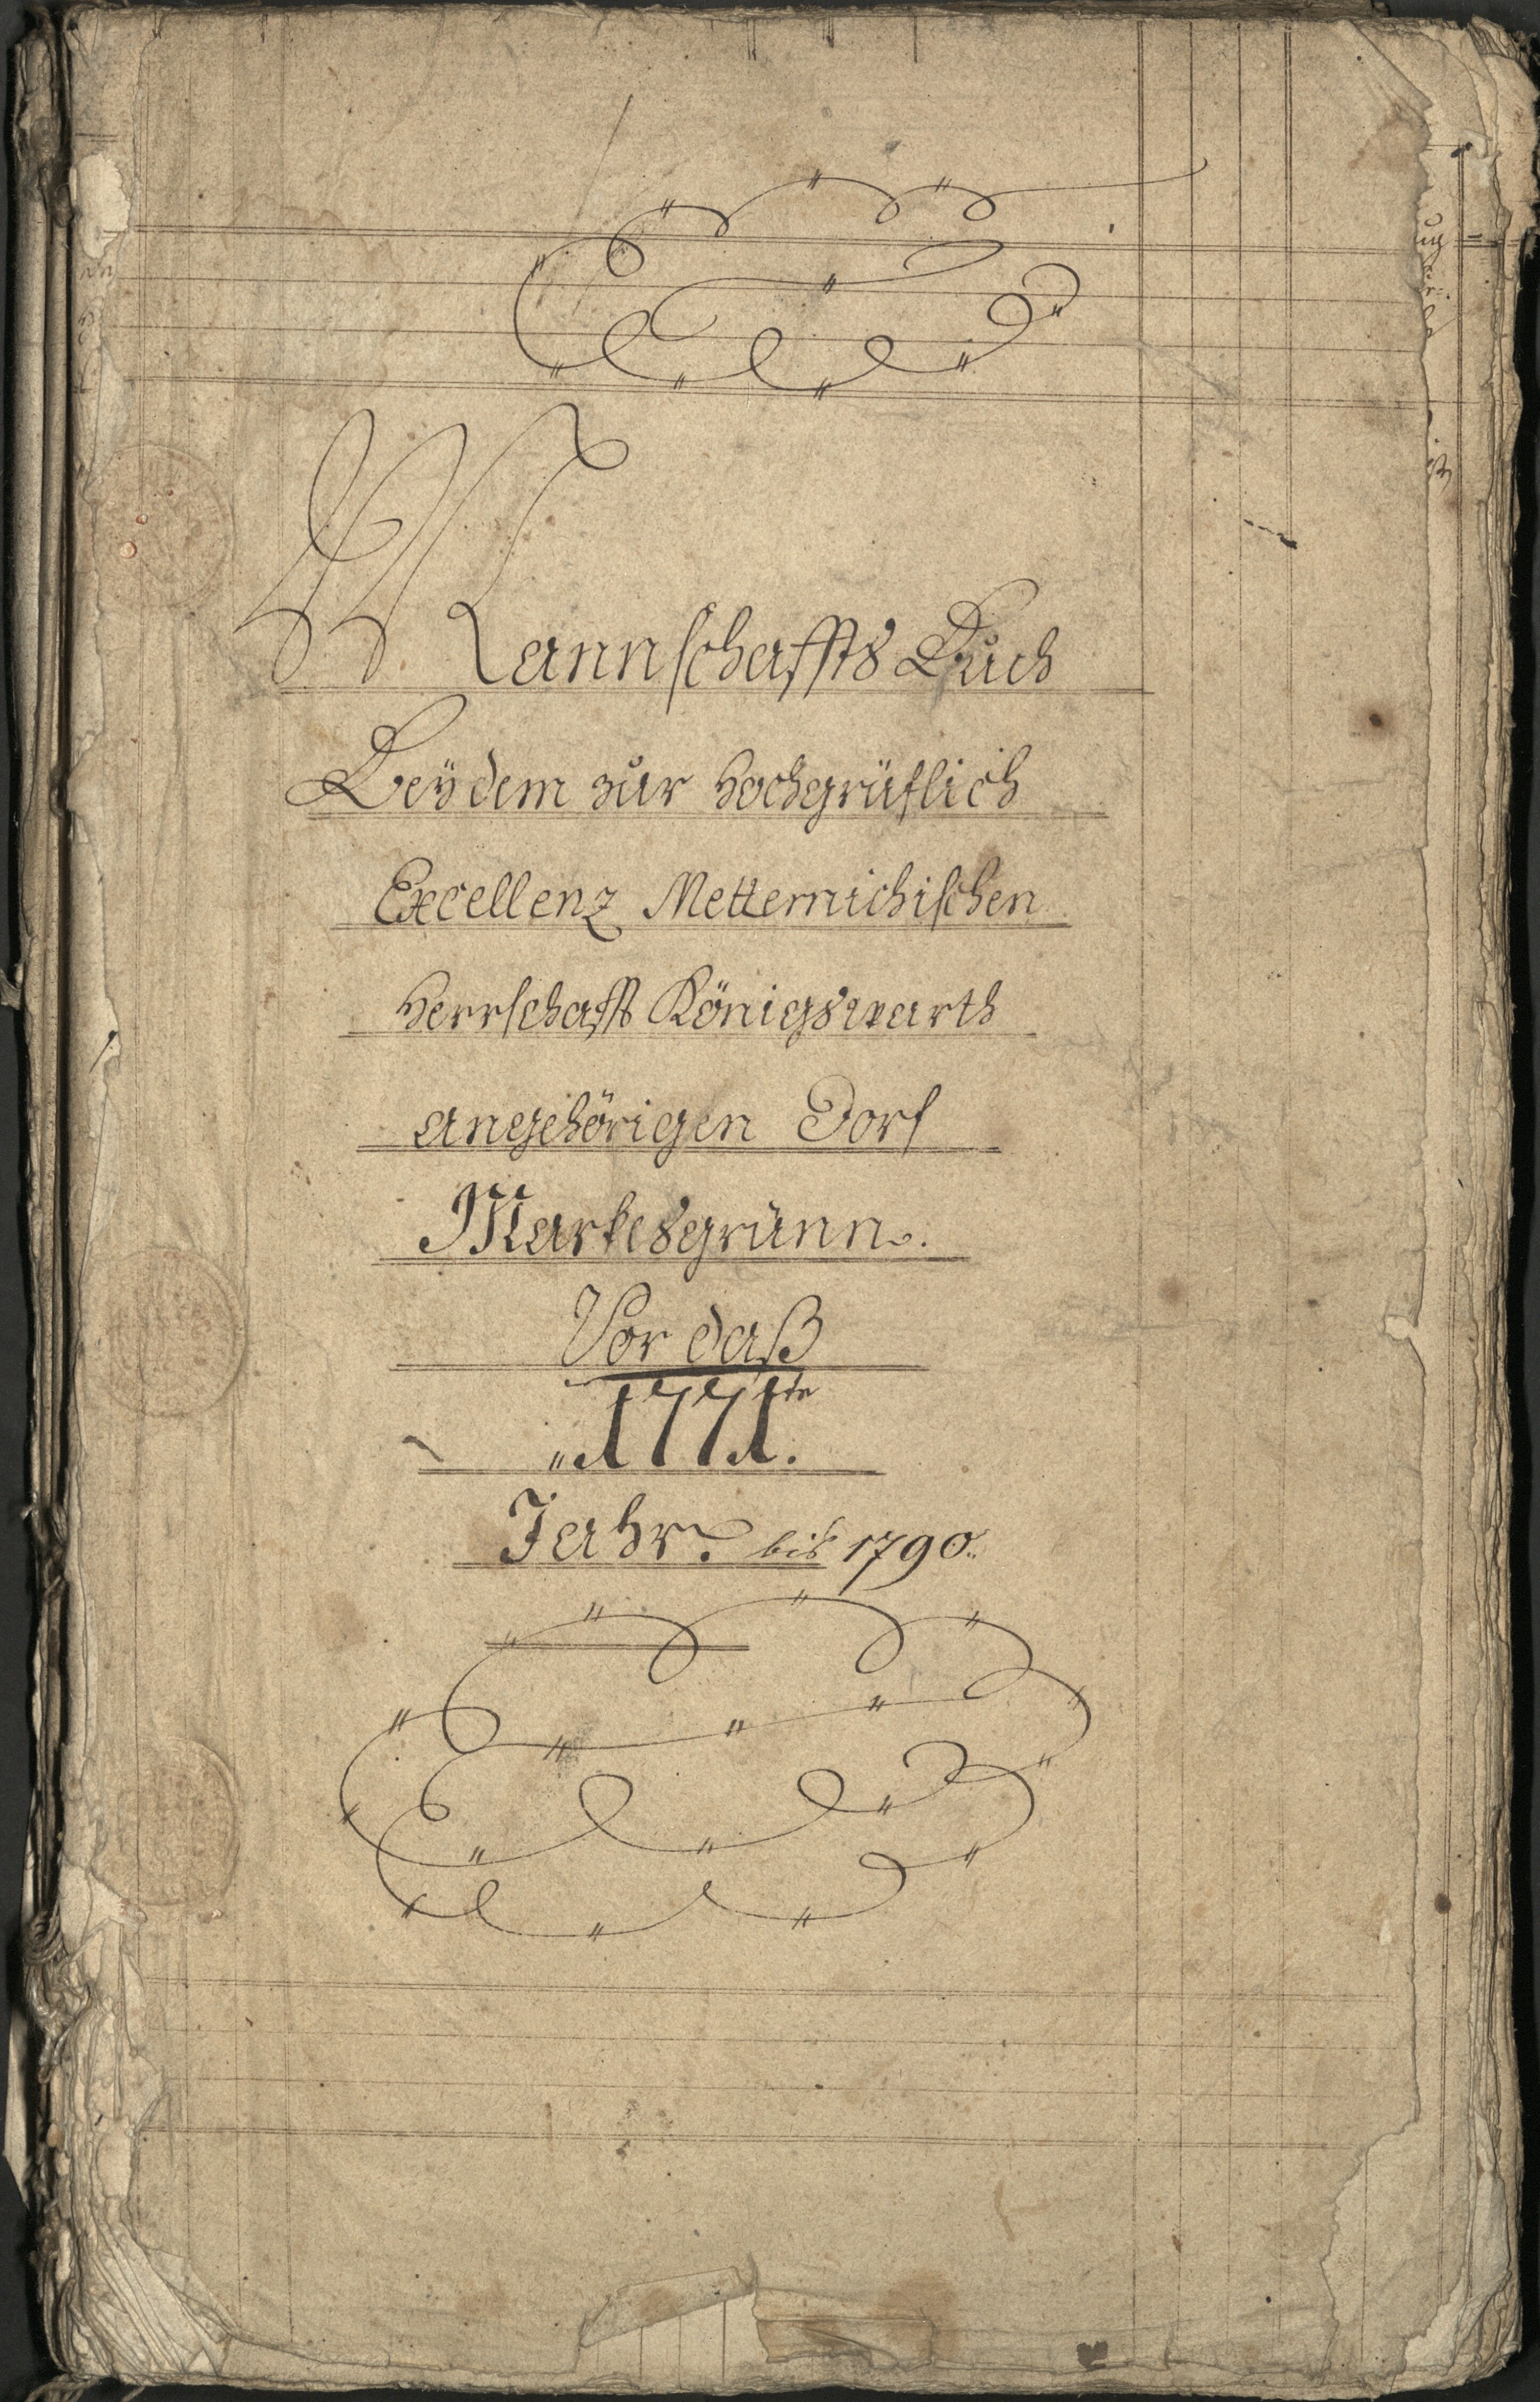 Mannschaffts Buch
Beÿ dem zur Hochgräflich
Excellenz Metternichischen
Herrschafft Königswarth
angehörigen Dorf
Markesgrünn.
Vor daß
„1771te.
Jahr. bis 1790.